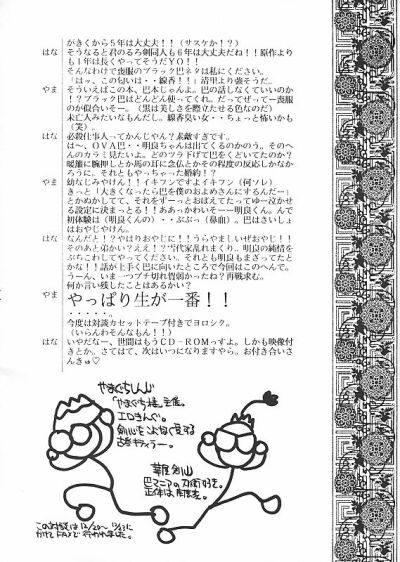 がきくから5年は大丈夫！！（サスケか！？）
はな　そうなると君のるろ剣同人も6年は大丈夫だね！！原作より
も1年は長くやってそうだＹＯ！！
そんなわけで喪服のブラック巴ネタは私にください。
「はっ、この匂いは・・線香！！」清里より強そうだ。
やま　そういえばこの本、巴本じゃんよ。巴の話しなくていいのか
！？ブラック巴はどんどん使ってくれ。だってぜってー喪服
のが似合いそー。（黒は美しさを際立たせる色なのだ）
未亡人みたいなもんなのね。線香臭い女・・ちょっと怖いかも
（笑）。
はな　必殺仕事人ってかんじやん？素敵すぎです。
は〜、ＯＶＡ巴・・明良ちゃんは出てくるのかのう。そのへ
んのカラミ見たいよ。どのツラ下げて巴をくどいてたのか？
暖簾に腕押しとか馬の耳に念仏とかその程度の反応しかなか
ろうに。それともやっちゃった婚約！？
やま　幼なじみやけん！！イキフンですよイキフン（何ソレ）
きっと「大きくなったら巴を僕のおよめさんにするんだー」
とかぬかしてて、それをずーっとおぼえてたってゆー泣かせ
る設定に決まっとる！！あああっかわいそーー明良くん。んで
初体験は（明良くんの）・・ぶぶっ（鼻血）。巴はさいしょ
はおやじやけん。
はな　なんだと！？やはりおやじに！！うらやましいぜおやじ！！
そのあと弟かい？ええ！？当代家乱れまくり。明良の純情を
ぶちこわしてやってください。それとも明良もまざってたと
かな！！話が上手く巴に向いたところで今回はこのへんで。
うーん、いま一つブチ切れ管弱かったね？再戦求む。
何か言い残したことはあるかい？
やま　やっぱり生が一番！！
・・・・・。
今度は対談カセットテープ付きでヨロシク。
（いらんわそんなもん！！）
はな　いやだなー、世間はもうＣＤ－ＲＯＭっすよ。しかも映像付
きとか。さてはて、次はいつになりますやら。お付き合いさ
んきゅ♡
やまぐちしんじ
「やまぐち楼」主催。
エロきんぐ。
華剣山
この対談は12/20〜
かけてFAXで行われました。